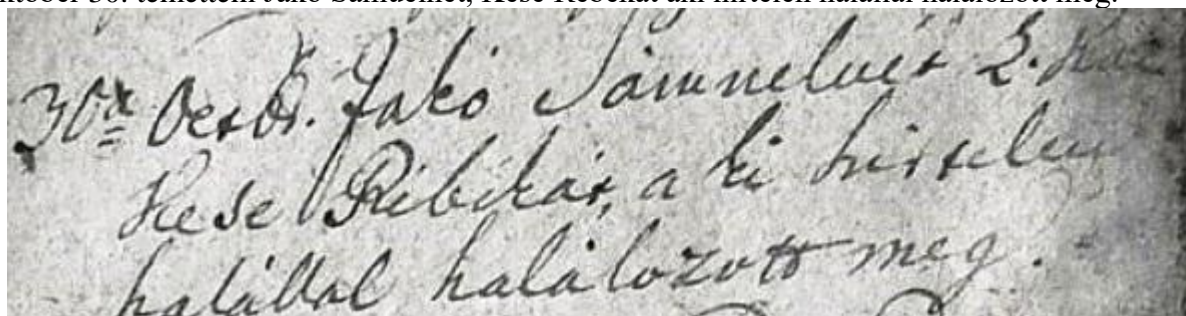 któber 30. temettem Jakó Sámuelnét, Kese Rebekát aki hirtelen halállal halálozott meg.
30a Octob. Jakó Sámuelnét
Kese Ribékát, a ki hirtelen
halállal halálozott meg.